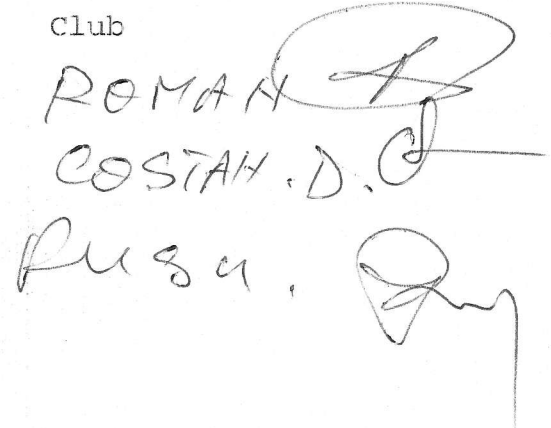 Club
ROMAN
COSTAN.D.
Rusu.